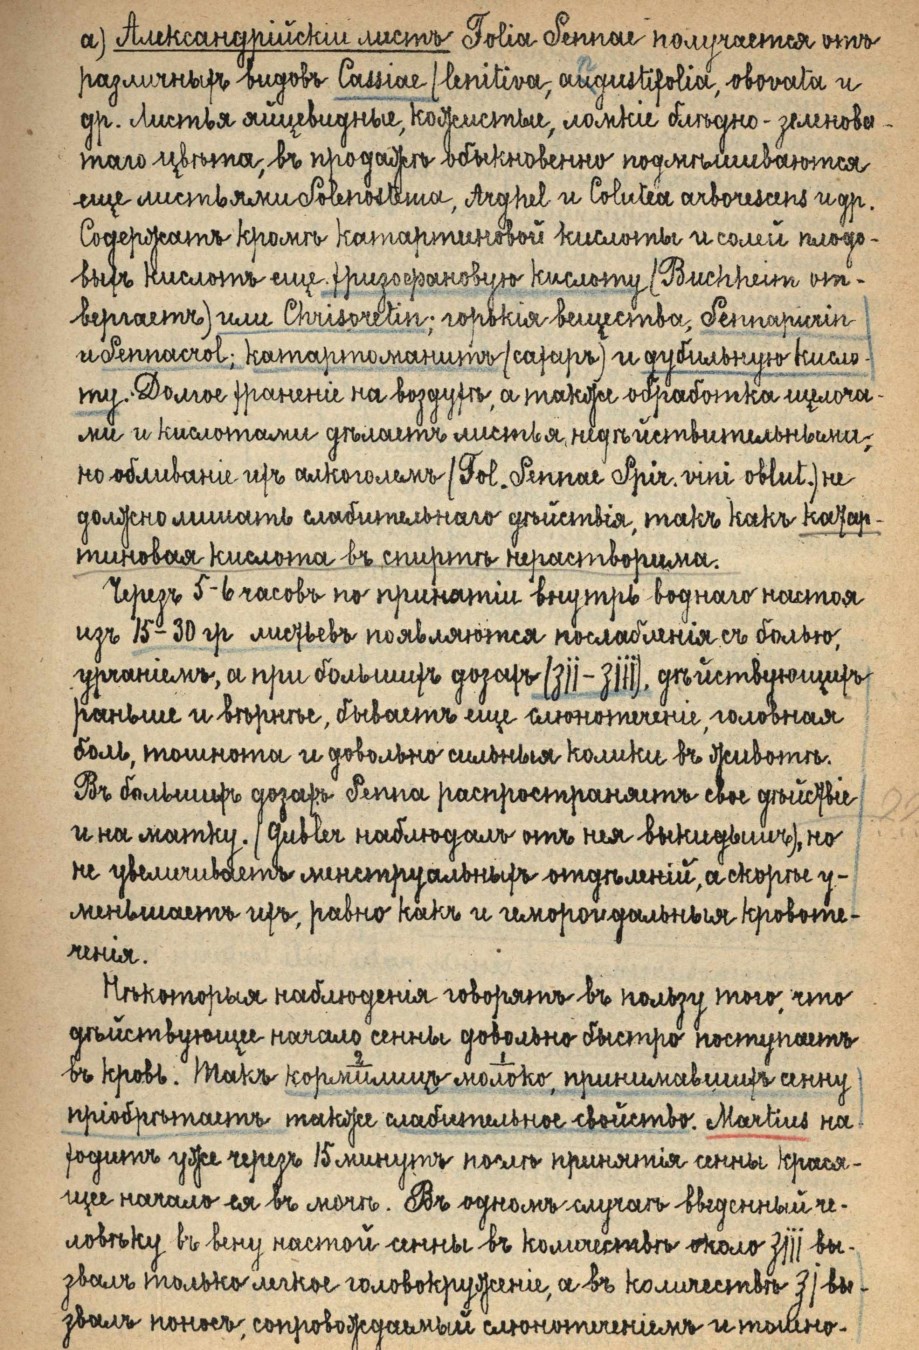 а) Александрійскіи листъ Folia Sennae получается отъ
различныхъ видовъ Cassiae (lenitiva, angustifolia, obovata и
др. Листья яйцевидные, кожистые, ломкіе блѣдно-зеленова-
таго цвѣта, въ продажѣ обыкновенно подмѣшиваются
еще листьями Solenostema, Arghel и Colutea arborescens и др.
Содержатъ кромѣ катартиновой кислоты и солей плодо-
выхъ кислотъ еще хризофановую кислоту (Buchheim от-
вергаетъ) или Chrisoretin; горькія вещества, Sennapicrin
и Sennacrol; катартоманитъ (сахаръ) и дубильную кисло-
ту. Долгое храненіе на воздухѣ, а также обработка щелоча-
ми и кислотами дѣлаетъ листья недѣйствительными;
но обливаніе ихъ алкоголемъ (Fol. Sennae Spir. vini oblut.) не
должно лишать слабительнаго дѣйствія, такъ какъ катар-
тиновая кислота въ спиртѣ нерастворима.
Черезъ 5-6 часовъ по принятіи внутрь воднаго настоя
изъ 15-30 гр листьевъ появляются послабленія съ болью,
урчаніемъ, а при большихъ дозахъ (ʒii - ʒiii), дѣйствующихъ
раньше и вѣрнѣе, бываетъ еще слюнотеченіе, головная
боль, тошнота и довольно сильныя колики въ животѣ.
Въ большихъ дозахъ Senna распространяетъ свое дѣйствіе
и на матку. (Gubler наблюдалъ отъ нея выкидышъ), но
не увеличиваетъ менструальныхъ отдѣленій, а скорѣе у-
меньшаетъ ихъ, равно какъ и гемороидальныя кровоте-
ченія.
Нѣкоторыя наблюденія говорятъ въ пользу того, что
дѣйствующее начало сенны довольно быстро поступаетъ
2 1
въ кровь. Такъ кормилицъ молоко, принимавшихъ сенну
пріобрѣтаетъ также слабительное свойство. Martius на
ходитъ уже черезъ 15 минутъ послѣ принятія сенны крася-
щее начало ея въ мочѣ. Въ одномъ случаѣ введенный че-
ловѣку въ вену настой сенны въ количествѣ около ʒiii вы-
звалъ только легкое головокруженіе, а въ количествѣ ʒj вы-
звалъ поносъ, сопровождаемый слюнотеченіемъ и тошно-